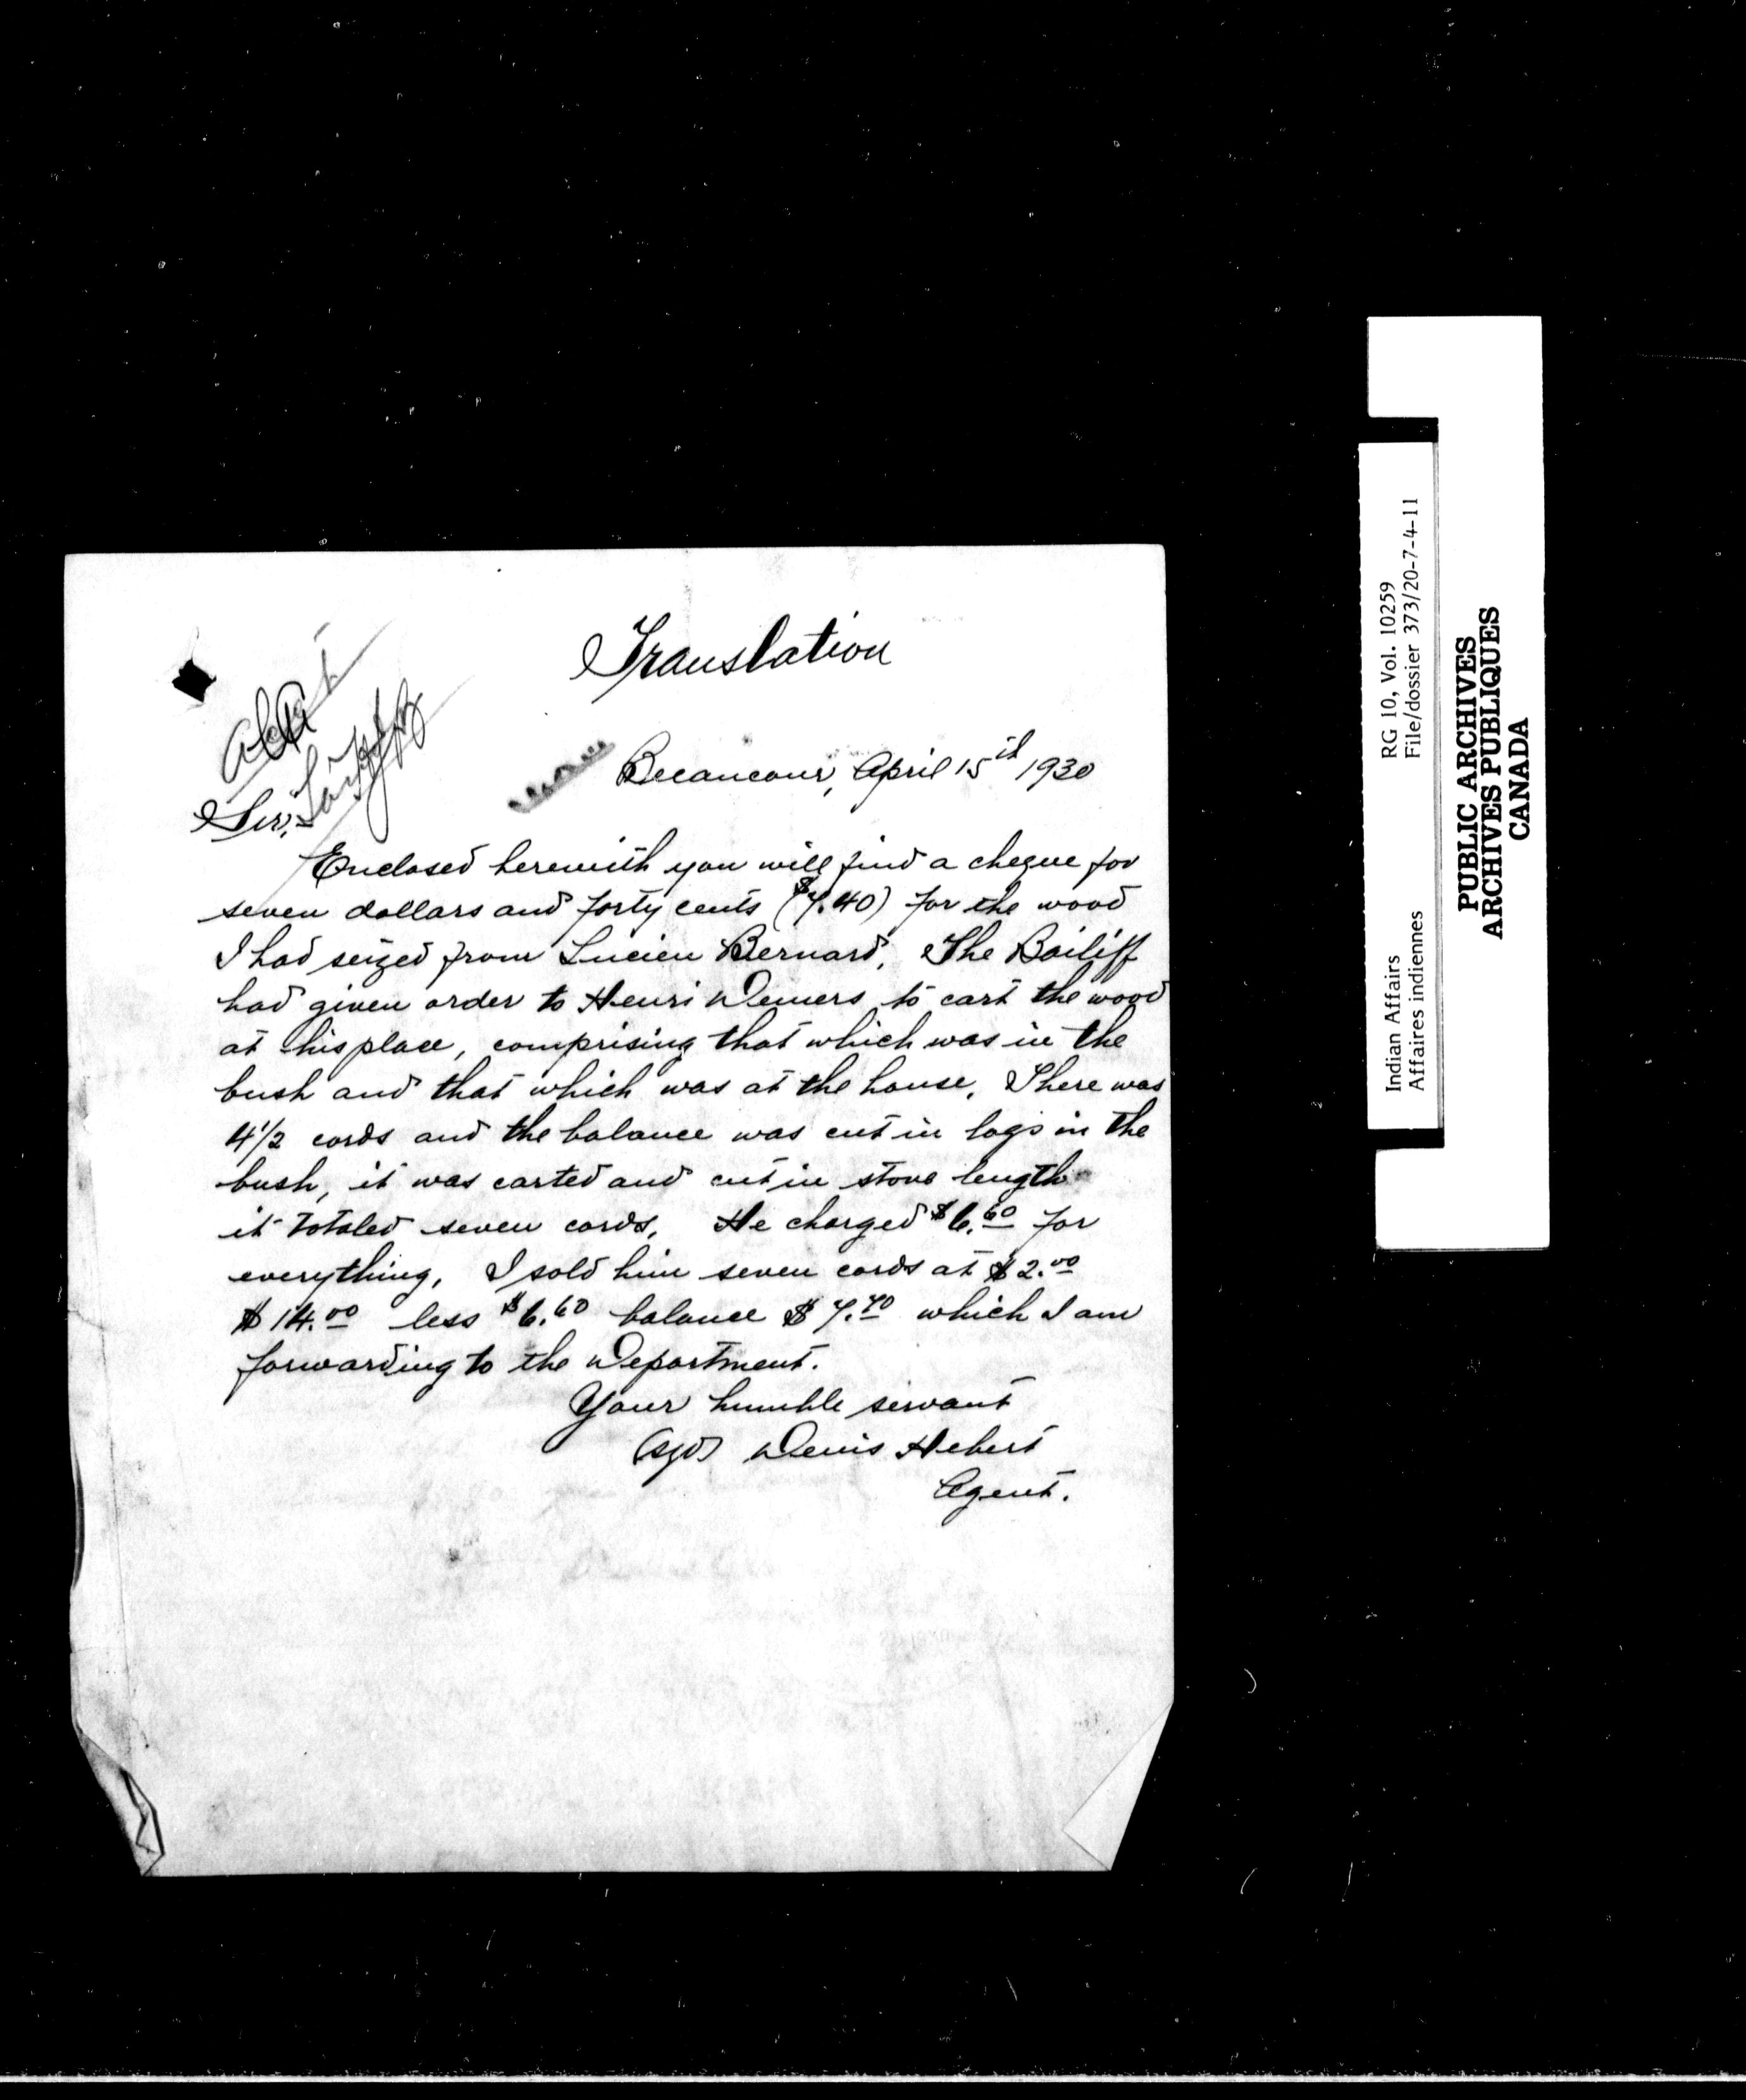 Translation
Becancour, April 15th 1930
Sir,
Enclosed herewith you will find a cheque for
seven dollars and forty cents ($7.40) for the wood
I had seized from Lucien Bernard. The Bailiff
had given order to Henri Demers to cart the wood
at his place, comprising that which was in the
bush and that which was at the house. There was
4 1/2 cords and the balance was cut in logs in the
bush, it was carted and cut in stove length
it totaled seven cords. He charged $6.60 for
everything. I sold him seven cords at $2.00
$14.00 less $6.60 balance $7.40 which I am
forwarding to the Department.
Your humble servant
(sgd) Denis Hebert
Agent.
Indian Affairs RG 10, Vol. 10259
Affaires indiennes File/dossier 373/20-7-4-11
PUBLIC ARCHIVES
ARCHIVES PUBLIQUES
CANADA